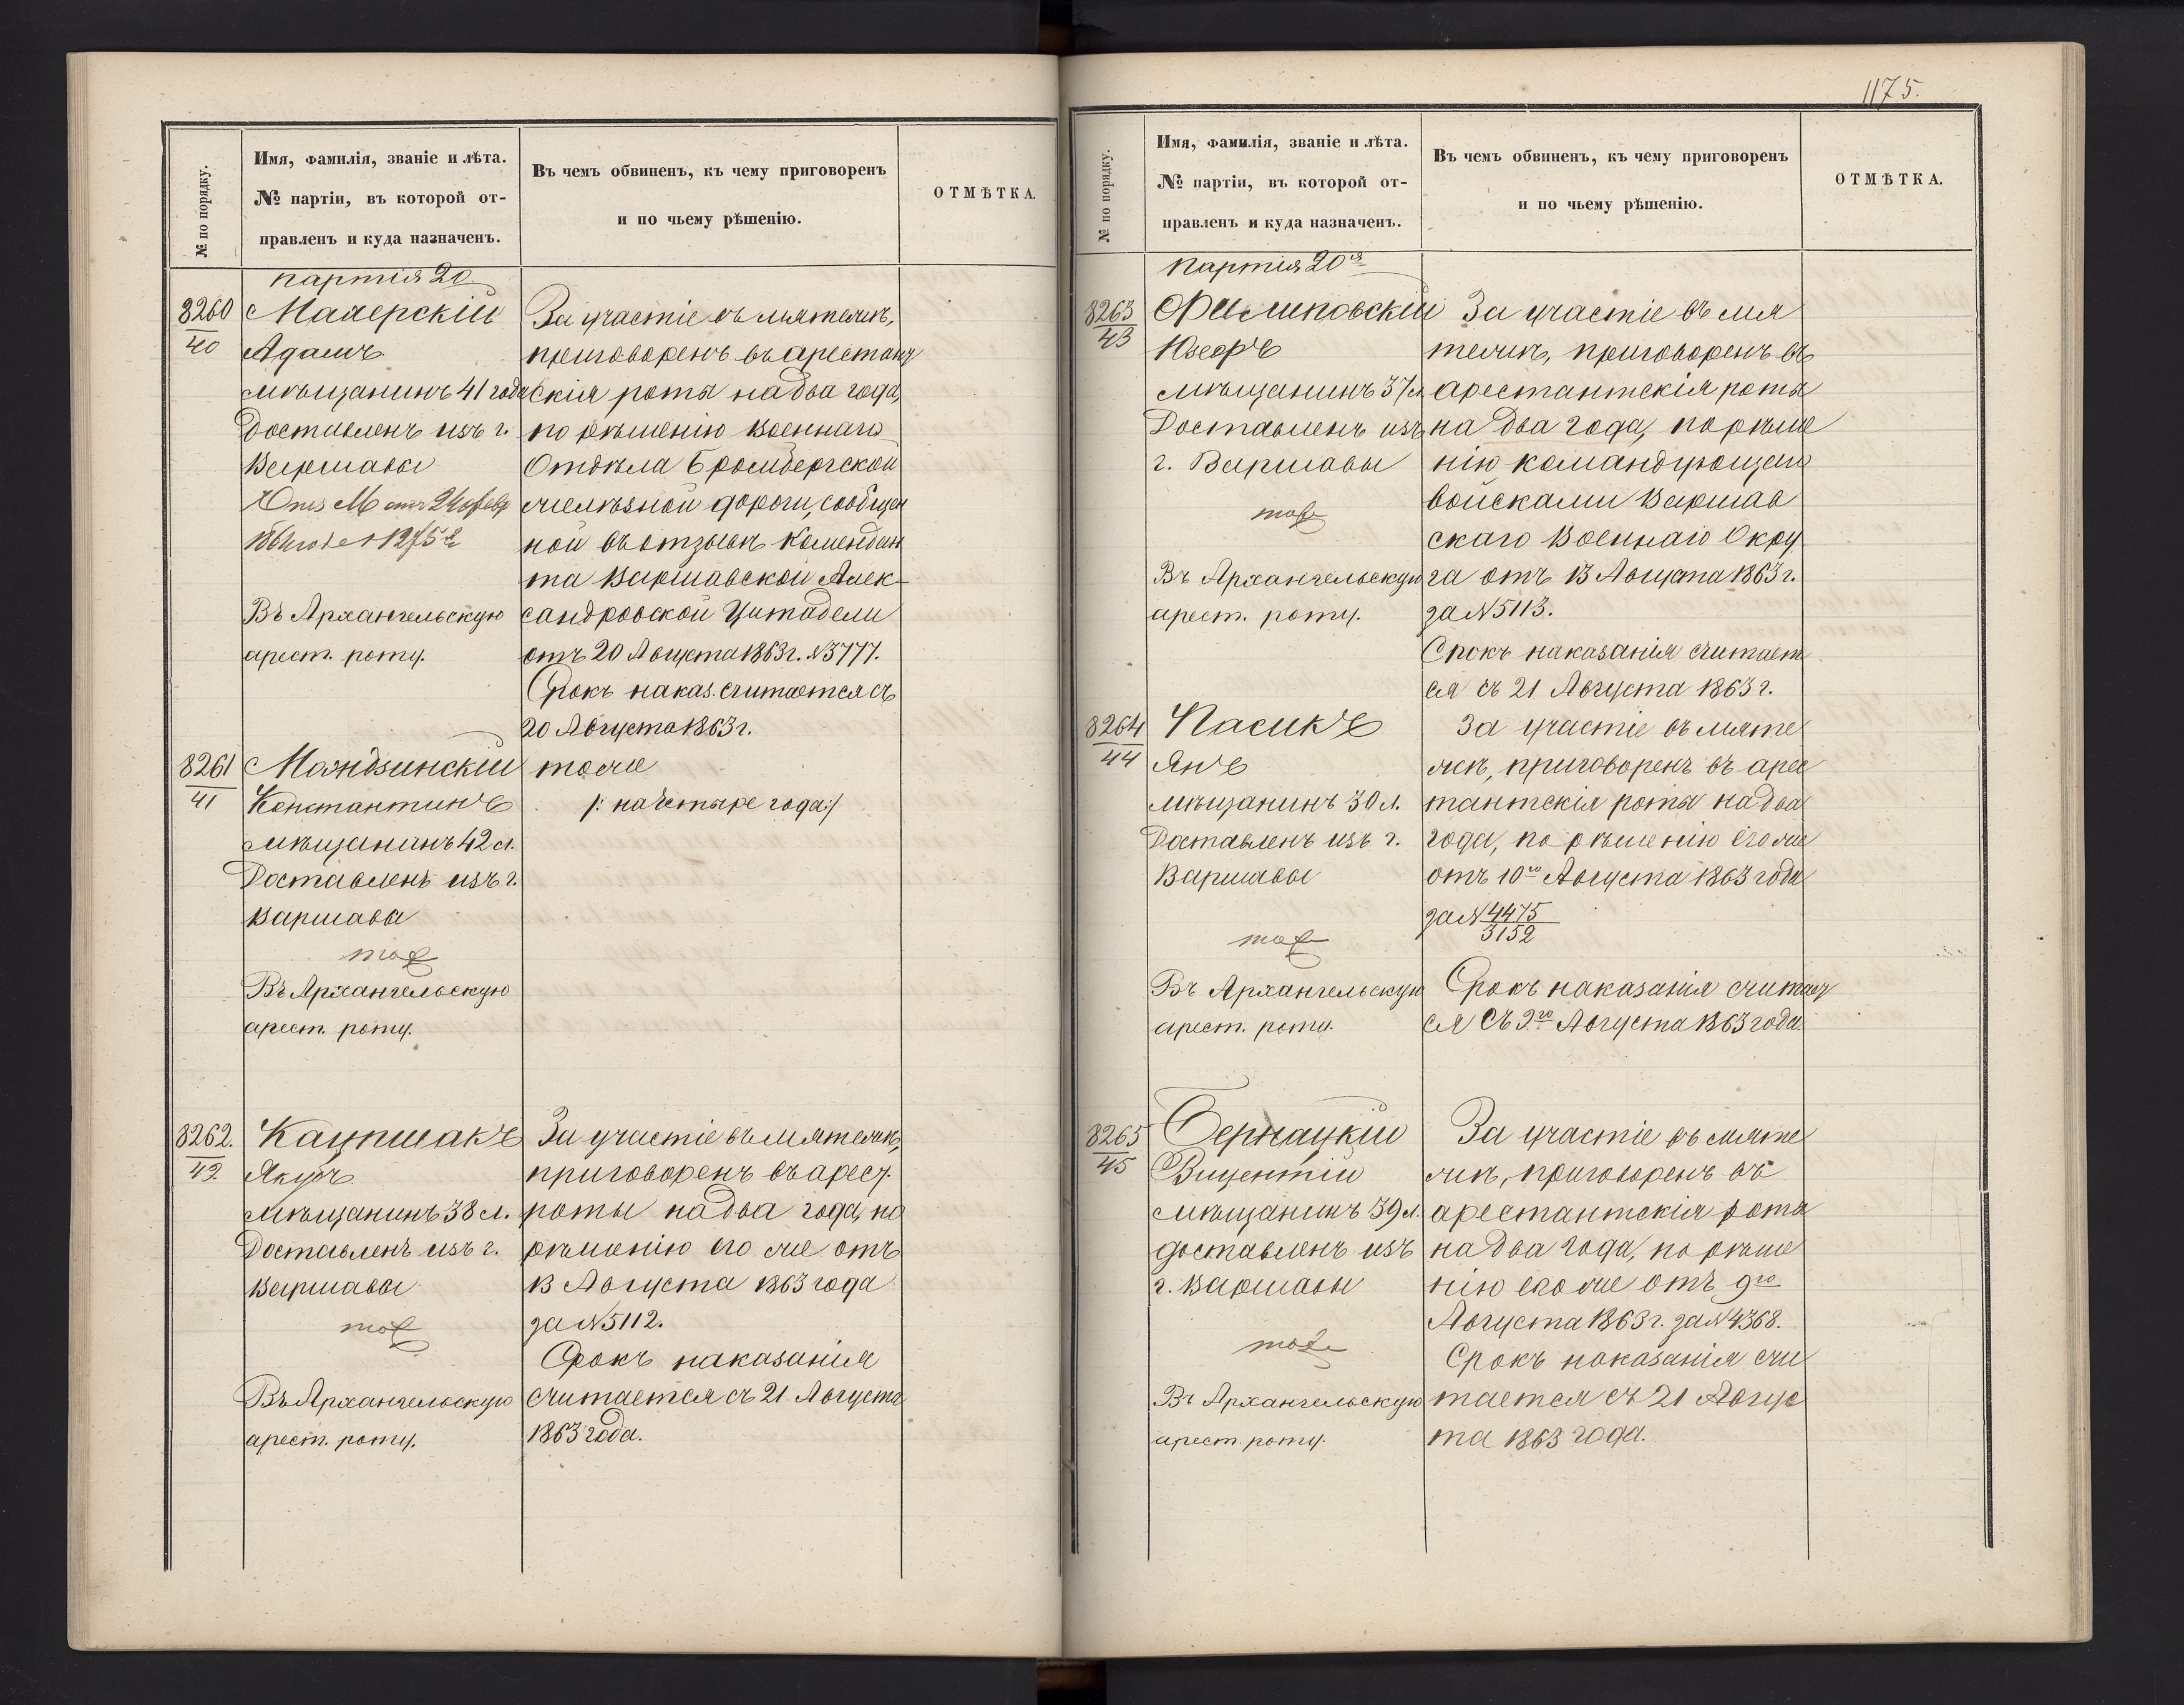 № по порядку.
Имя, фамилія, званіе и лѣта.
№ партіи, въ которой от-
правленъ и куда назначенъ.
Въ чемъ обвиненъ, къ чему приговоренъ
и по чьему рѣшенію.
ОТМѢТКА.
партія 20
8260
40
Маперскій
Адамъ
мѣщанинъ 41 года
Доставленъ изъ г.
Варшавы
Въ Архангельскую
арест. роту.
За участіе въ мятежѣ,
приговоренъ въ арестант
скія роты на два года,
по рѣшенію Военнаго
Отдѣла Бромбергской
желѣзной дороги, сообщен
ной въ отзывѣ Комендан
та Варшавской Алек-
сандровской Цитадели
отъ 20 Августа 1863 г. №3777.
Срокъ наказ. считается съ
20 Августа 1863 г.
8261
41
Мондзинскій
Константинъ
мѣщанинъ 42 л.
Доставленъ изъ г.
Варшавы
тоже
Въ Архангельскую
арест. роту.
тоже
/: на четыре года :/
8262.
42
Кацпшакъ
Якубъ
мѣщанинъ 38 л.
Доставленъ изъ г.
Варшавы
тоже
Въ Архангельскую
арест. роту.
За участіе въ мятежѣ,
приговоренъ въ арест.
роты на два года, по
рѣшенію его же отъ
13 Августа 1863 года
за №5112.
Срокъ наказанія
считается съ 21 Августа
1863 года.
1175.
№ по порядку.
Имя, фамилія, званіе и лѣта.
№ партіи, въ которой от-
правленъ и куда назначенъ.
Въ чемъ обвиненъ, къ чему приговоренъ
и по чьему рѣшенію.
ОТМѢТКА.
партія 20я
8263
43
Филиповскій
Юзефъ
мѣщанинъ 37 л.
Доставленъ изъ
г. Варшавы
тоже
Въ Архангельскую
арест. роту.
За участіе въ мя
тежѣ, приговоренъ въ
арестантскія роты
на два года, по рѣше
нію командующаго
войсками Варшав
скаго Военнаго Окру
га отъ 13 Августа 1863 г.
за №5113.
Срокъ наказанія считает
ся съ 21 Августа 1863 г.
8264
44
Пасикъ
Янъ
мѣщанинъ 30 л.
Доставленъ изъ г.
Варшавы
тоже
Въ Архангельскую
арест. роту.
За участіе въ мяте
жѣ, приговоренъ въ арес
тантскія роты на два
года, по рѣшенію его же
отъ 10го Августа 1863 года
за № 4475
3152
Срокъ наказанія считает
ся съ 9го Августа 1863 года.
8265
45
Бернацкій
Вицентій
мѣщанинъ 39 л.
доставленъ изъ
г. Варшавы
тоже
Въ Архангельскую
арест. роту.
За участіе въ мяте
жѣ, приговоренъ въ
арестантскія роты
на два года, по рѣше
нію его же отъ 9го
Августа 1863 г. за №4368.
Срокъ наказанія счи
тается съ 21 Авгус
та 1863 года.